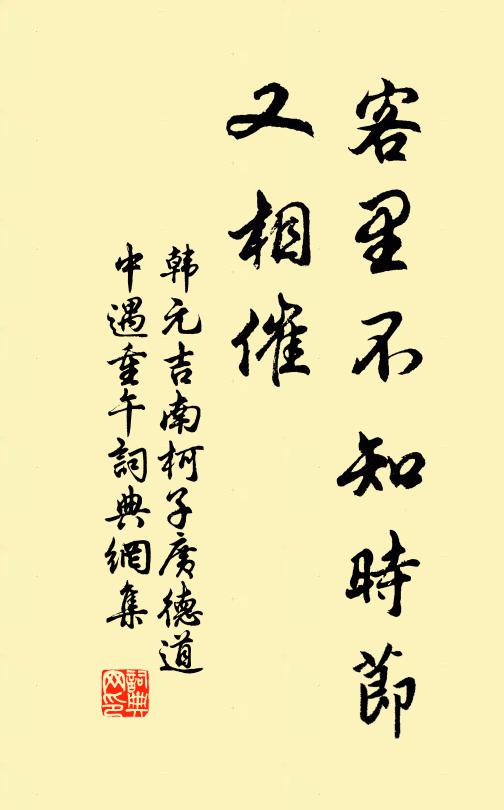 客里不知時節
又相催
韩元吉南柯子廣德道
中遇重午詞典網集
詞典
网印